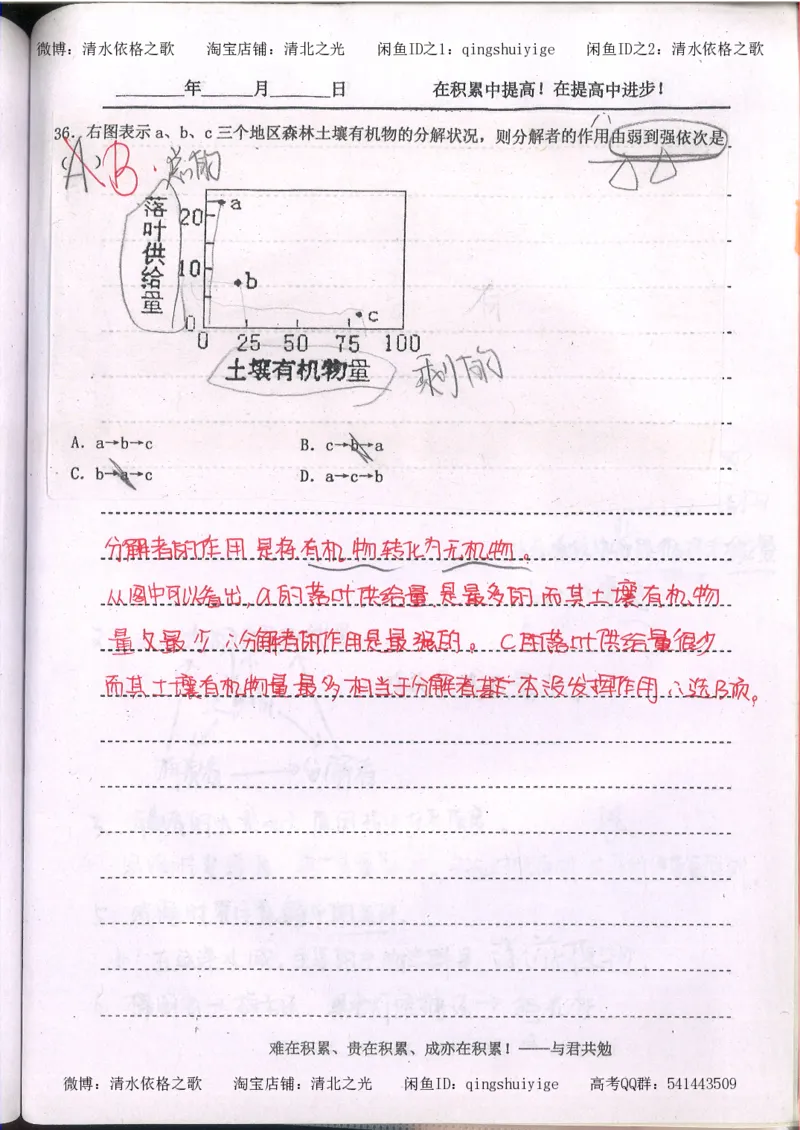 微博：清水依格之歌 淘宝店铺：清北之光 闲鱼ID之1：qingshuiyige 闲鱼ID之2：清水依格之歌
______年______月______日 在积累中提高！在提高中进步！
36．右图表示 a、b、c 三个地区森林土壤有机物的分解状况，则分解者的作用由弱到强依次是
(A) B. 总的
落叶供给量
20
10
0
a
b
c
0 25 50 75 100
土壤有机物量 剩下的
A. a→b→c B. c→b→a
C. b→a→c D. a→c→b
分解者的作用是将有机物转化为无机物。
从图中可以看出，a的落叶供给量是最多的而其土壤有机物
量又最少∴分解者的作用是最强的。C的落叶供给量很少
而其土壤有机物量最多，相当于分解者基本没发挥作用∴选B项。
难在积累、贵在积累、成亦在积累！——与君共勉
微博：清水依格之歌 淘宝店铺：清北之光 闲鱼ID：qingshuiyige 高考QQ群：541443509